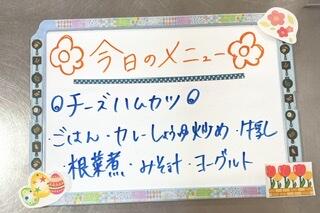 今日のメニュー
◎チーズハムカツ◎
・ごはん・カレーしょうゆ炒め・牛乳
・根菜煮・みそ汁・ヨーグルト